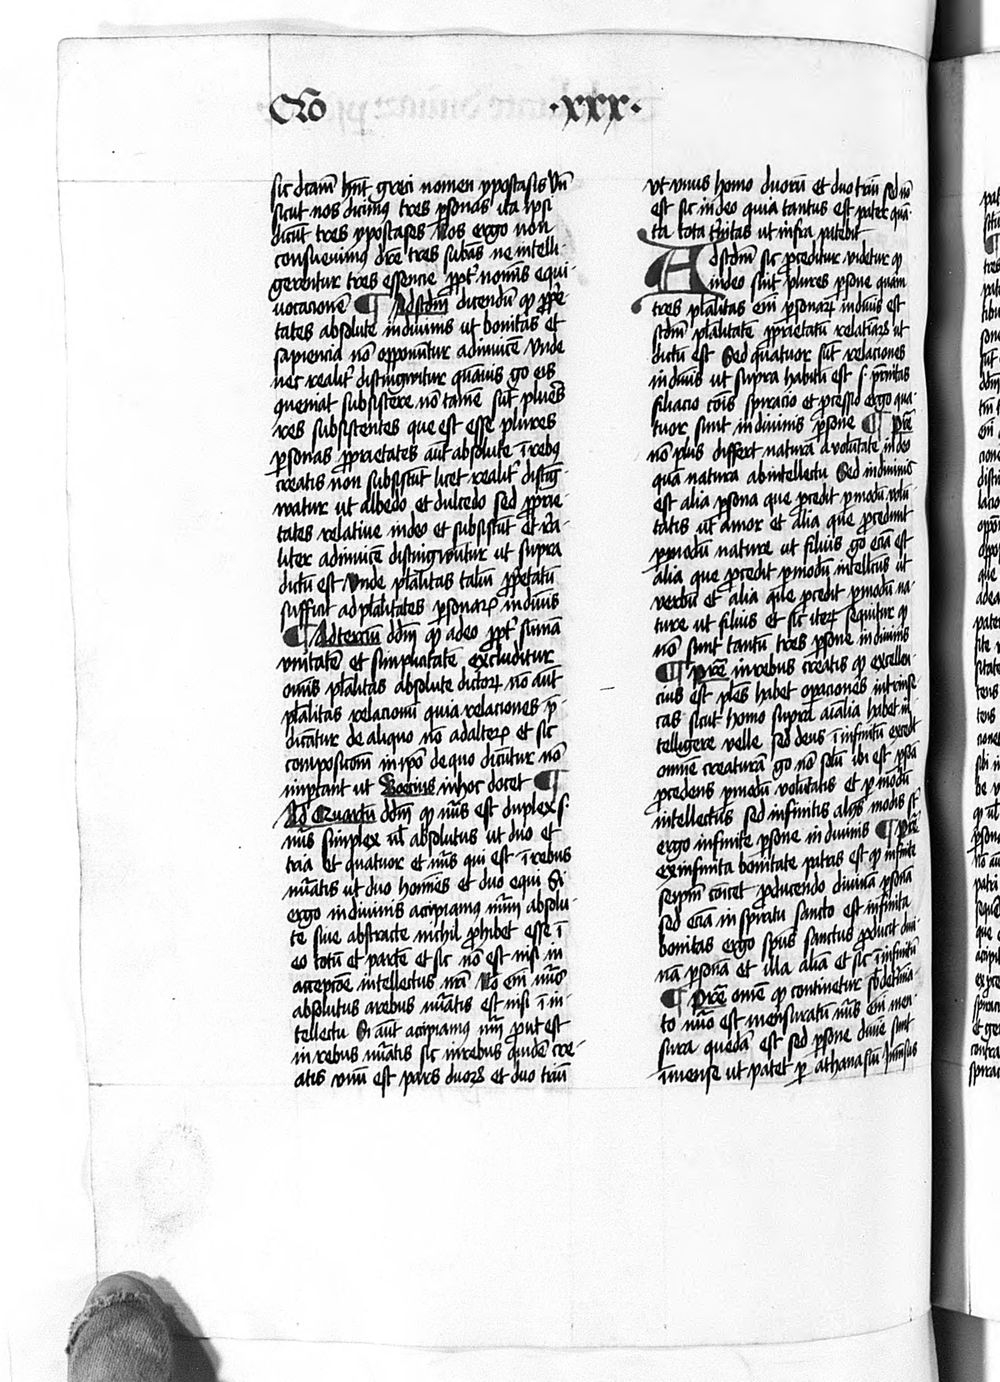 Qo .xxx.
sic dicam hn̄t greci nomen ypostasis Vn̄
sicut nos dicimꝰ tres ꝑsonas ita ipsi
dicūt tres ypostases Nos ergo non
consuevimꝰ dice᷑ tres subās ne intelli-
gerentur tres essencie ꝓpt᷑ nomīs equi-
uocacionē ¶ Ad scdm̄ dicendū ꝙ ꝓprie-
tates absolute in diuinis ut bonitas et
sapiencia nō opponūtur adinuicē Vnde
nec realit᷑ distinguūtur quāuis g̊ eis
queniat subsistere nō tamē sūt plures
res subsistentes que est esse plures
ꝑsonas ꝓprietates aūt absolute ī rebꝰ
creatis non subsistūt licet realit᷑ distīg-
wātur ut albedo et dulcedo sed ꝓprie-
tates relatiue in deo et subsistūt et rea-
liter adinuicē distinguūtur ut supra
dictū est Vnde pl᷑alitas taliū ꝓprietatū
sufficit ad pl᷑alitates ꝑsonarꝫ in diuīs
¶ Ad terciū ddm̄ ꝙ a deo ꝓpt᷑ sūmā
vnitatē et simplicitatē excluditur
omīs pl᷑alitas absolute dictorꝫ nō aūt
pl᷑alitas relacionū quia relaciones p̄-
dicātur de aliquo nō ad alterꝫ et sic
composicōm in ip̄o de quo dicūtur nō
inportant ut Boecius in hoc docet ¶
Ad Quartū ddm̄ ꝙ nūs est duplex s.
nūs simplex ul̄ absolutus ut duo et
tria et quatuor et nūs qui est ī rebus
nūatis ut duo hoīnes et duo equi Si
ergo in diuinis accipiamꝰ nūm absolu-
te siue abstracte nichil ꝓhibet esse ī
eo totū et partē et sic nō est nisi in
accepcōe intellectus nr̄i Nō em̄ nūs
absolutus a rebus nūatis est nisi ī in-
tellectu Si aūt accipiamꝰ nūm ꝓut est
in rebus nūatis sic in rebus quidē cre-
atis vnū est pars duorꝫ et duo triū
vt vnus homo duorū et duo triū sed nō
est sic in deo quia tantus est pater quā-
ta tota t᷑nitas ut infra patebit
Ad scdm̄ sic ꝓceditur videtur ꝙ
in deo sint plures ꝑsone quam
tres pl᷑alitas em̄ ꝑsonarꝫ in diuīs est
scdm̄ pl᷑alitatē ꝓprietatū relatiuarꝫ ut
dictū est Sed quatuor sūt relaciones
in diuīs ut supra habitū est s. p̄rnitas
filiacio cōis spiracio et ꝓcessio ergo qua-
tuor sunt in diuinis ꝑsone ¶ Pre᷑
nō plus differt natura a volūtate in deo
quā natura ab intellectu Sed in diuinis
est alia ꝑsona que ꝓcedit ꝑ modū volū-
tatis ut amor et alia que ꝓcedit
ꝑ modū nature ut filius g̊ eciā est
alia que ꝓcedit ꝑ modū intellectus ut
verbū et alia que ꝓcedit ꝑ modū na-
ture ut filius et sic iterꝫ sequitur ꝙ
nō sunt tantū tres ꝑsone in diuinis
¶ Pre᷑ in rebus creatis ꝙ excellen-
cius est ples habet operaciones intrinse-
cas sicut homo supra aīalia habet in-
telligere velle sed deus ī infinitū excedit
omnē creaturā go nō solū ibi est ꝑsōa
ꝓcedens ꝑ modū volūtatis et ꝑ modū
intellectus sed infinitis alijs modis sūt
ergo infinite ꝑsone in diuinis ¶ Pre᷑
ex infinita bonitate patris est ꝙ infinite
seip̄m cōicet ꝓducendo diuinā ꝑsonā
sed eciā in spiritu sancto est infinita
bonitas ergo spūs sanctus ꝓducit diui-
nā ꝑsonā et illa aliā et sic ī infinitū
¶ Pre᷑ omē ꝙ continetur sb̄ determīa-
to nūo est mensuratū nūs em̄ men-
sura quedā est sed ꝑsone diuīe sunt
īmense ut patet ꝑ athanasiū Inmēsus